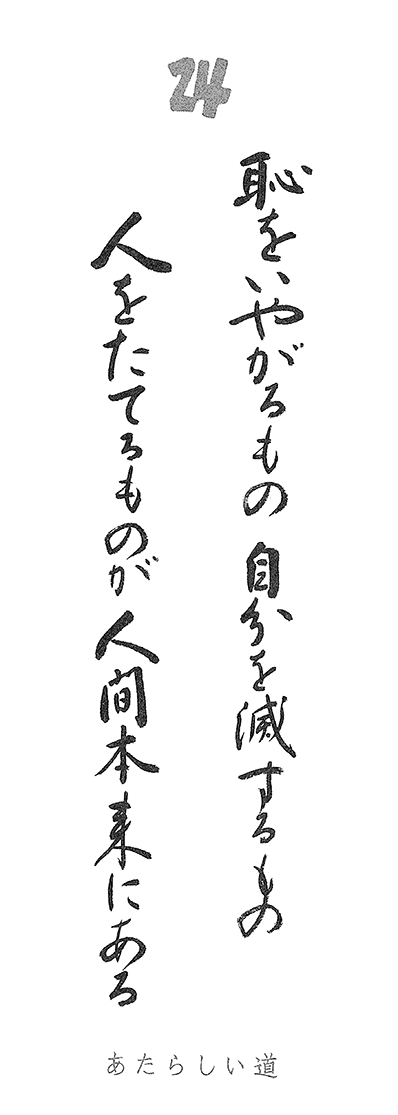 24
恥をいやがるもの 自分を滅するもの
人をたてるものが 人間本来にある
あたらしい道